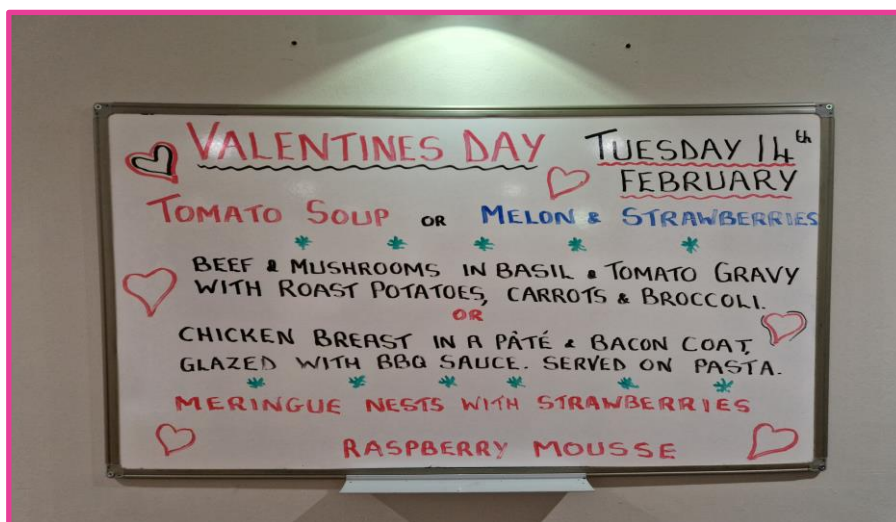 VALENTINES DAY
TUESDAY 14th
FEBRUARY
TOMATO SOUP OR MELON & STRAWBERRIES
BEEF & MUSHROOMS IN BASIL & TOMATO GRAVY
WITH ROAST POTATOES, CARROTS & BROCCOLI.
OR
CHICKEN BREAST IN A PÂTÉ & BACON COAT,
GLAZED WITH BBQ SAUCE. SERVED ON PASTA.
MERINGUE NESTS WITH STRAWBERRIES
RASPBERRY MOUSSE